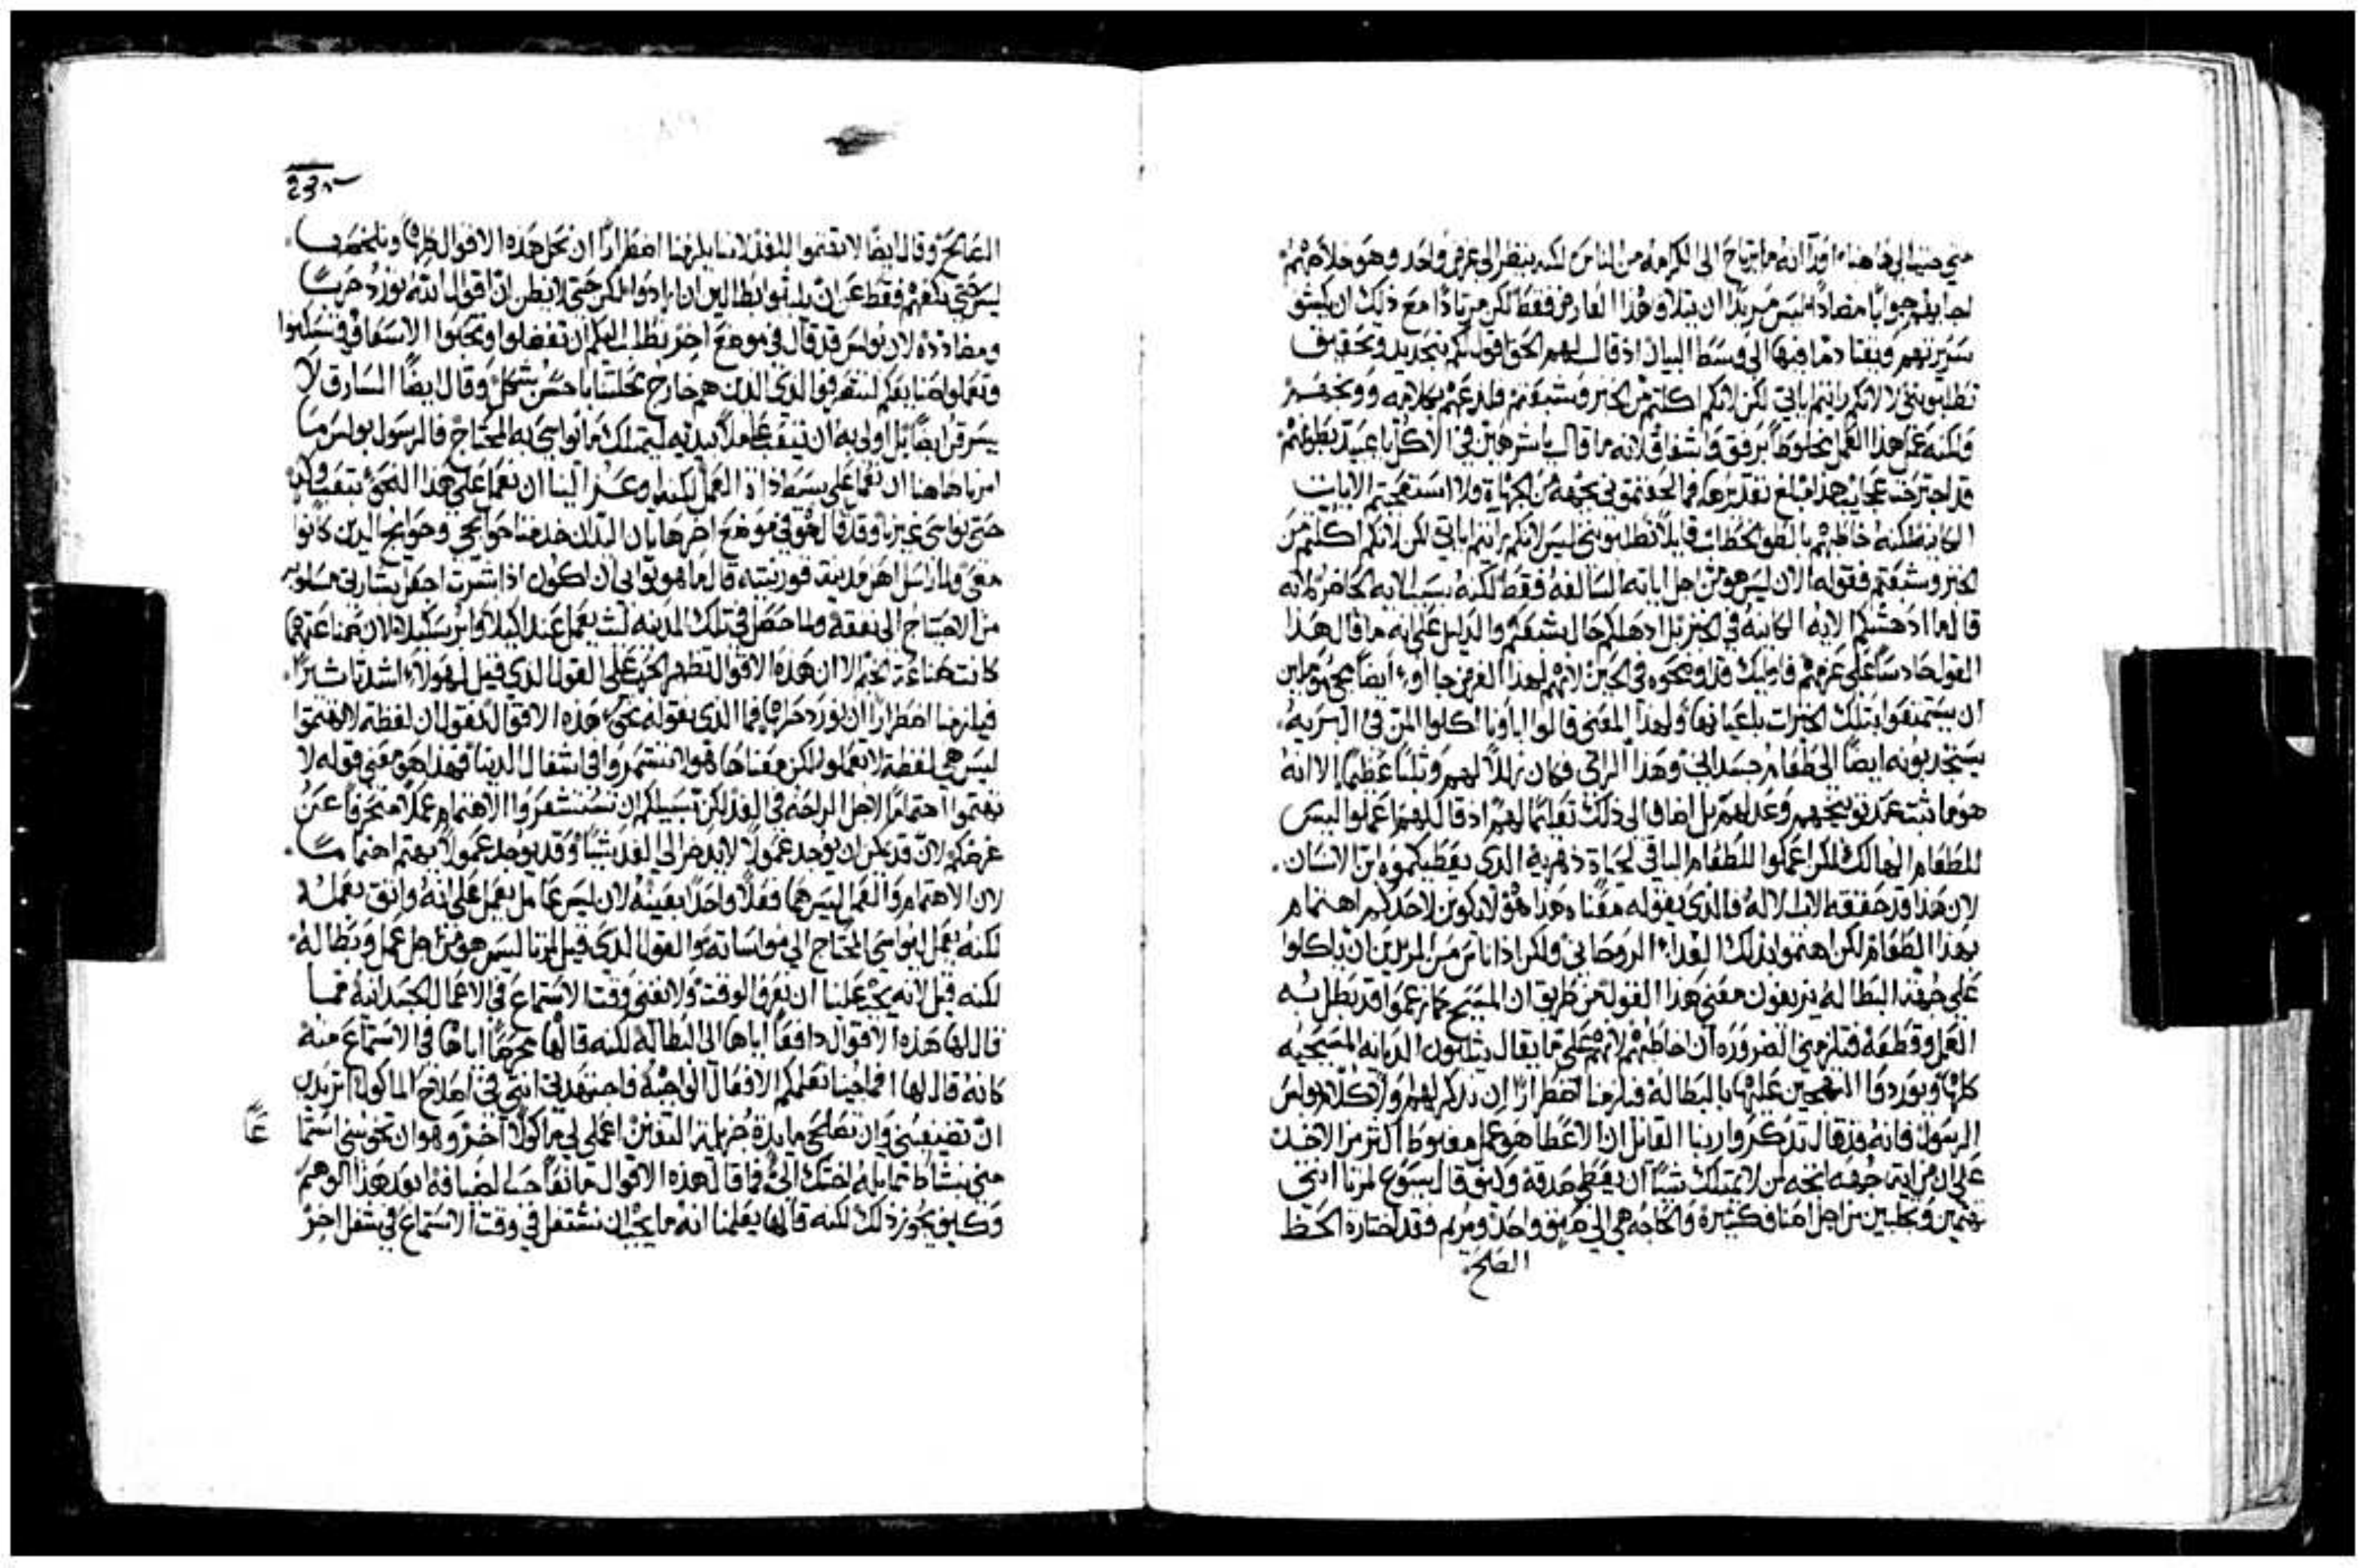 متي جيت الي هاهنا اورا انه ما يرتاح الي الكرامه من الناس لكنه ينظر الي غرض واحد وهو خلاصهم
اجابهم جوابًا مضادًا ليس مريدًا ان يتلاوا هذا العارض فقط لكن مريدًا مع ذلك ان يكشف
سريرتهم ويقتاد ما فيها الي وسط البيان اذ قال لهم الحق اقول لكم بتحديد وتحقيق
تطلبونني لا لانكم رايتم اياتي لكن لانكم اكلتم من الخبز وشبعتم فلدعهم بكلامه ووبخهم
ولكنه عمل هذا العمل مخلوطًا برفق واشفاق لانه ما قال يا شرهين في الاكل يا عبيد بطونهم
قد اجترحت عجايب هذا مبلغ تقديرها فما لحقتموني بجهه من الجهات ولا استعجبتم الايات
الكاينه لكنه خاطبهم بالطف الخطاب قايلًا تطلبونني ليس لانكم رايتم اياتي لكن لانكم اكلتم من
الخبز وشبعتم فقوله الان ليس هو من اجل اياته السالفه فقط لكنه بسبب اياته الحاضره لانه
قال ما ادهشكم الايه الكاينه في الخبز بل ادهلكم حال شبعكم والدليل علي انه ما قال هذا
القول حادسًا علي عزمهم فاوليك قد اوضحوه في الحين لانهم لهذا الغرض جااوا ايضًا نحوه موملين
ان يستمتعوا بتلك الخيرات باعيانها ولهذا المعني قالوا اباونا اكلوا المن في البريه
يستجدبونه ايضًا الي طعام جسداني وهذا الراي فكان زللًا لهم وثلبًا عظيمًا الا انه
هو ما ثبت عند توبيخهم وعدلهم بل اضاف الي ذلك تعليمًا لهم اذ قال لهم اعملوا ليس
للطعام الهالك لكن اعملوا للطعام الباقي لحياة دهريه الدي يعطيكموه ابن الانسان.
لان هذا قد حققه الاب الاله فالذي يقوله معناه هذا هو لا يكونن لاحدكم اهتمام
بهذا الطعام لكن اهتموا بذلك الغداء الروحاني ولكن اذ اناس من المريدين ان ياكلوا
علي جهة البطاله يزيفون معني هذا القول من طريق ان المسيح كما زعموا قد بطل به
العمل وقطعه فيلزمني الضروره ان اخاطبهم لانهم علي ما يقال يثلبون الديانه المسيحيه
كلها ويوردوا التهجين عليها بالبطاله فيلزمنا اضطرارًا ان نذكر لهم اولًا كلام بولس
الرسول فانه قد قال تذكروا ربنا القايل ان الاعطا هو عمل مغبوط اكثر من الاخد
علي ان من اية جهه يتجه لمن لا يمتلك شيًا ان يعطي صدقه وكيف قال يسوع لمرتا انتي
تهتمين وتجلبين من اجل اصناف كثيره والحاجه هي الي صنف واحد ومريم فقد اختارت الحظ
الصالح
23
الصالح وقال ايضًا لا تهتموا للغد لاننا يلزمنا اضطرارًا ان نحل هذه الاقوال كلها
ليس حتي نكفهم فقط عن ان يلبثوا بطالين ان ارادوا لكن حتي لا يظن ان اقوال الله تورد حربًا
ومضادده لان بولس قد قال في موضع اخر نطلب اليكم ان تفضلوا وتحبوا الاشفاق وتسكنوا
وتعملوا صنايعكم لتتصرفوا لدي الذين هم خارج محلتنا باحسن شكل وقال ايضًا السارق لا
يسرق ايضًا بل اولي به ان يتعب عاملًا بيديه ليمتلك ما يواسي به المحتاج فالرسول بولس ما
امرنا هاهنا ان نعمل علي بسيط ذات العمل لكنه اوعز الينا ان نعمل علي هذا النحو بتعب
حتي نواسي غيرنا وقد قال هو في موضع اخر هاتان اليدان خدمتا حوايجي وحوايج الدين كانوا
معي ولما راسل اهل مدينة قورنتيه قال ما هو ثوابي ان اكون اذا بشرت اجعل بشارتي مسلوبه
من الاحتياج الي نفقه ولما حصل في تلك المدينه لبث يعمل عند اكيلا وابرسكيلا لان صناعتهما
كانت صناعة الخيم الا ان هذه الاقوال تظهر الحرب علي القول الذي قيل لهولاء اشد تاشيرًا.
فيلزمنا اضطرارًا ان نورد حلها فما الدي نقوله نحو هذه الاقوال نقول ان لفظة لا تهتموا
ليس هي لفظة لا تعملوا لكن معناها هو لا تنسمروا في اشغال الدنيا فهذا هو معني قوله لا
تهتموا اهتمامًا لاجل الراحه في الغد لكن سبيلكم ان تستشعروا الاهتمام عملًا منحرفًا عن
غرضكم لان قد يمكن ان يوجد عمولًا لا يدخر الي الغد شيًا وقد يوجد عمولًا يهتم اهتمامًا.
لان الاهتمام والعمل ليس هما فعلًا واحدًا بعينه لان ليس عامل يعمل علي انه واثق بعمله
لكنه يعمل ليواسي المحتاج الي مواساته والقول الذي قيل لمرتا ليس هو من اجل عمل وبطاله
لكنه قيل لانه يجب علينا ان نعرف الوقت ولا نفني وقت الاستماع في الاعمال الجسدانيه فما
قال لها هذه الاقوال دافعًا اياها الي البطاله لكنه قالها محرضًا اياها في الاستماع منه
كانه قال لها انما جينا نعلمكم الافعال الواجبه فاجتهدتي انتي في اصلاح الماكول اتريدين
ان تضيفيني وان تصلحي مايدة جزيله التعين اعملي لي ماكولًا اخر وهو ان تخوليني استماعًا
مني بنشاط تماثله اختك الي فما قال هذه الاقوال مانعًا حب الضيافه ابعد هذا الوهم
وكيف يجوز ذلك لكنه قالها يعلمنا انه ما يجب ان نشتغل في وقت الاستماع في شغل اخر